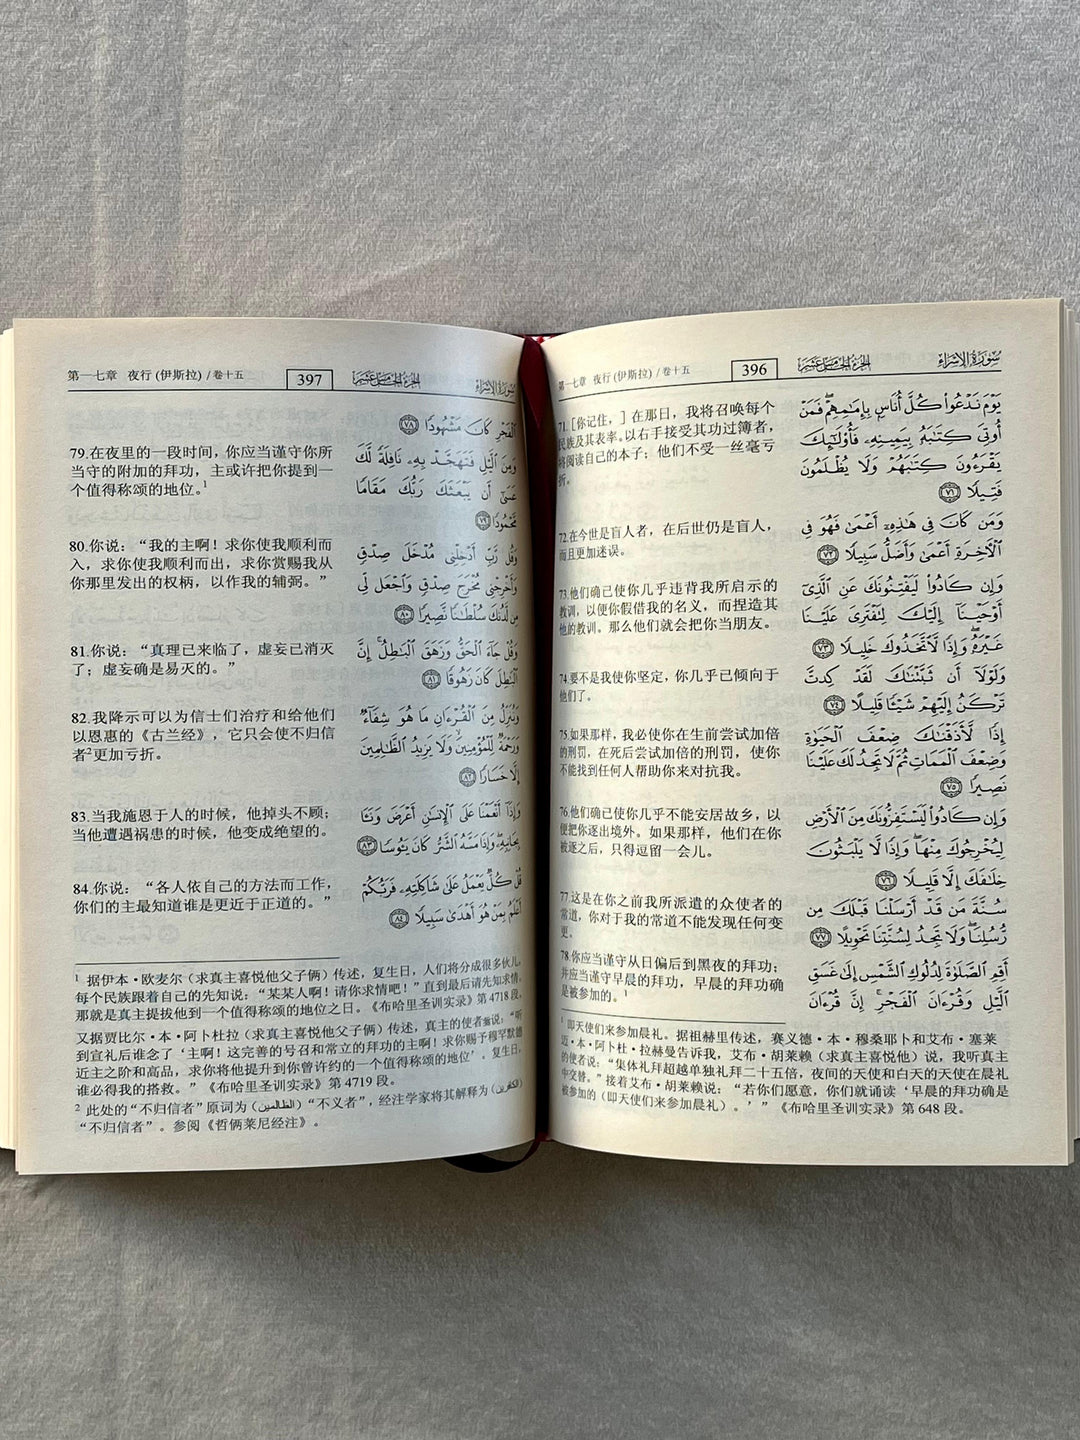 第一七章 夜行(伊斯拉) / 卷十五
396
الجزء الخامس عشر
سورة الإسراء
71.[你记住，] 在那日，我将召唤每个
民族及其表率。以右手接受其功过簿者，
将阅读自己的本子；他们不受一丝毫亏
折。
يَوْمَ نَدْعُوا۟ كُلَّ أُنَاسٍۭ بِإِمَـٰمِهِمْ ۖ فَمَنْ
أُوتِىَ كِتَـٰبَهُۥ بِيَمِينِهِۦ فَأُو۟لَـٰٓئِكَ
يَقْرَءُونَ كِتَـٰبَهُمْ وَلَا يُظْلَمُونَ
فَتِيلًا ٧١
72.在今世是盲人者，在后世仍是盲人，
而且更加迷误。
وَمَن كَانَ فِى هَـٰذِهِۦٓ أَعْمَىٰ فَهُوَ فِى
ٱلْـَٔاخِرَةِ أَعْمَىٰ وَأَضَلُّ سَبِيلًا ٧٢
73.他们确已使你几乎违背我所启示的
教训，以便你假借我的名义，而捏造其
他的教训。那么他们就会把你当朋友。
وَإِن كَادُوا۟ لَيَفْتِنُونَكَ عَنِ ٱلَّذِىٓ
أَوْحَيْنَآ إِلَيْكَ لِتَفْتَرِىَ عَلَيْنَا
غَيْرَهُۥ ۖ وَإِذًا لَّٱتَّخَذُوكَ خَلِيلًا ٧٣
74.要不是我使你坚定，你几乎已倾向于
他们了。
وَلَوْلَآ أَن ثَبَّتْنَـٰكَ لَقَدْ كِدتَّ
تَرْكَنُ إِلَيْهِمْ شَيْـًٔا قَلِيلًا ٧٤
75.如果那样，我必使你在生前尝试加倍
的刑罚，在死后尝试加倍的刑罚，使你
不能找到任何人帮助你来对抗我。
إِذًا لَّأَذَقْنَـٰكَ ضِعْفَ ٱلْحَيَوٰةِ
وَضِعْفَ ٱلْمَمَاتِ ثُمَّ لَا تَجِدُ لَكَ عَلَيْنَا
نَصِيرًا ٧٥
76.他们确已使你几乎不能安居故乡，以
便把你逐出境外。如果那样，他们在你
被逐之后，只得逗留一会儿。
وَإِن كَادُوا۟ لَيَسْتَفِزُّونَكَ مِنَ ٱلْأَرْضِ
لِيُخْرِجُوكَ مِنْهَا ۖ وَإِذًا لَّا يَلْبَثُونَ
خِلَـٰفَكَ إِلَّا قَلِيلًا ٧٦
77.这是在你之前我所派遣的众使者的
常道，你对于我的常道不能发现任何变
更。
سُنَّةَ مَن قَدْ أَرْسَلْنَا قَبْلَكَ مِن
رُّسُلِنَا ۖ وَلَا تَجِدُ لِسُنَّتِنَا تَحْوِيلًا ٧٧
78.你应当谨守从日偏后到黑夜的拜功；
并应当谨守早晨的拜功，早晨的拜功确
是被参加的。¹
أَقِمِ ٱلصَّلَوٰةَ لِدُلُوكِ ٱلشَّمْسِ إِلَىٰ غَسَقِ
ٱلَّيْلِ وَقُرْءَانَ ٱلْفَجْرِ ۖ إِنَّ قُرْءَانَ
¹ 即天使们来参加晨礼。据祖赫里传述，赛义德·本·穆桑耶卜和艾布·塞莱
迈·本·阿卜杜·拉赫曼告诉我，艾布·胡莱赖（求真主喜悦他）说，我听真主
的使者说：“集体礼拜超越单独礼拜二十五倍，夜间的天使和白天的天使在晨礼
中交替。”接着艾布·胡莱赖说：“若你们愿意，你们就诵读‘早晨的拜功确是
被参加的（即天使们来参加晨礼）。’” 《布哈里圣训实录》第 648 段。
第一七章 夜行(伊斯拉) / 卷十五
397
الجزء الخامس عشر
سورة الإسراء
ٱلْفَجْرِ كَانَ مَشْهُودًا ٧٨
79.在夜里的一段时间，你应当谨守你所
当守的附加的拜功，主或许把你提到一
个值得称颂的地位。¹
وَمِنَ ٱلَّيْلِ فَتَهَجَّدْ بِهِۦ نَافِلَةً لَّكَ
عَسَىٰٓ أَن يَبْعَثَكَ رَبُّكَ مَقَامًا
مَّحْمُودًا ٧٩
80.你说：“我的主啊！求你使我顺利而
入，求你使我顺利而出，求你赏赐我从
你那里发出的权柄，以作我的辅弼。”
وَقُل رَّبِّ أَدْخِلْنِى مُدْخَلَ صِدْقٍ
وَأَخْرِجْنِى مُخْرَجَ صِدْقٍ وَٱجْعَل لِّى
مِن لَّدُنكَ سُلْطَـٰنًا نَّصِيرًا ٨٠
81.你说：“真理已来临了，虚妄已消灭
了；虚妄确是易灭的。”
وَقُلْ جَآءَ ٱلْحَقُّ وَزَهَقَ ٱلْبَـٰطِلُ ۚ إِنَّ
ٱلْبَـٰطِلَ كَانَ زَهُوقًا ٨١
82.我降示可以为信士们治疗和给他们
以恩惠的《古兰经》，它只会使不归信
者²更加亏折。
وَنُنَزِّلُ مِنَ ٱلْقُرْءَانِ مَا هُوَ شِفَآءٌ
وَرَحْمَةٌ لِّلْمُؤْمِنِينَ ۙ وَلَا يَزِيدُ ٱلظَّـٰلِمِينَ
إِلَّا خَسَارًا ٨٢
83.当我施恩于人的时候，他掉头不顾；
当他遭遇祸患的时候，他变成绝望的。
وَإِذَآ أَنْعَمْنَا عَلَى ٱلْإِنسَـٰنِ أَعْرَضَ وَنَـَٔا
بِجَانِبِهِۦ ۖ وَإِذَا مَسَّهُ ٱلشَّرُّ كَانَ يَـُٔوسًا ٨٣
84.你说：“各人依自己的方法而工作，
你们的主最知道谁是更近于正道的。”
قُلْ كُلٌّ يَعْمَلُ عَلَىٰ شَاكِلَتِهِۦ فَرَبُّكُمْ
أَعْلَمُ بِمَنْ هُوَ أَهْدَىٰ سَبِيلًا ٨٤
¹ 据伊本·欧麦尔（求真主喜悦他父子俩）传述，复生日，人们将分成很多伙儿，
每个民族跟着自己的先知说：“某某人啊！请你求情吧！”直到最后请先知求情，
那就是真主提拔他到一个值得称颂的地位之日。《布哈里圣训实录》第 4718 段。
又据贾比尔·本·阿卜杜拉（求真主喜悦他父子俩）传述，真主的使者ﷺ说：“听
到宣礼后谁念了‘主啊！这完善的号召和常立的拜功的主啊！求你赐予穆罕默德
近主之阶和高品，求你将他提升到你曾许约的一个值得称颂的地位’，复生日，
谁必得我的搭救。” 《布哈里圣训实录》第 4719 段。
² 此处的“不归信者”原词为 (الظالمين) “不义者”，经注学家将其解释为 (الكافرين)
“不归信者”。参阅《哲俩莱尼经注》。